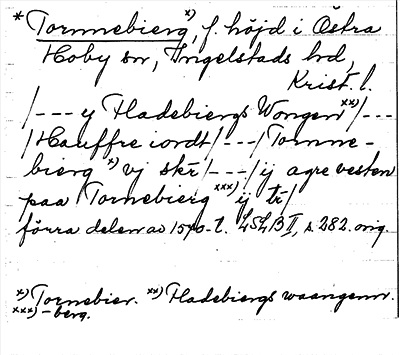 * Tormnebierg x), f. höjd i Östra
Hoby sn, Ingelstads hd,
Krist. l.
/--- y Fladebiergs Wongen xx)/---
/Hauffre iordt/---/Tormne-
bierg x) vj skr/---/ij agre vesten
paa Tornebierg xxx) ij tr/
förra delen av 1570-t. LSLB II, s. 282. orig.
x) Tornebier. xx) Fladebiergs waangenn.
xxx) -berg.